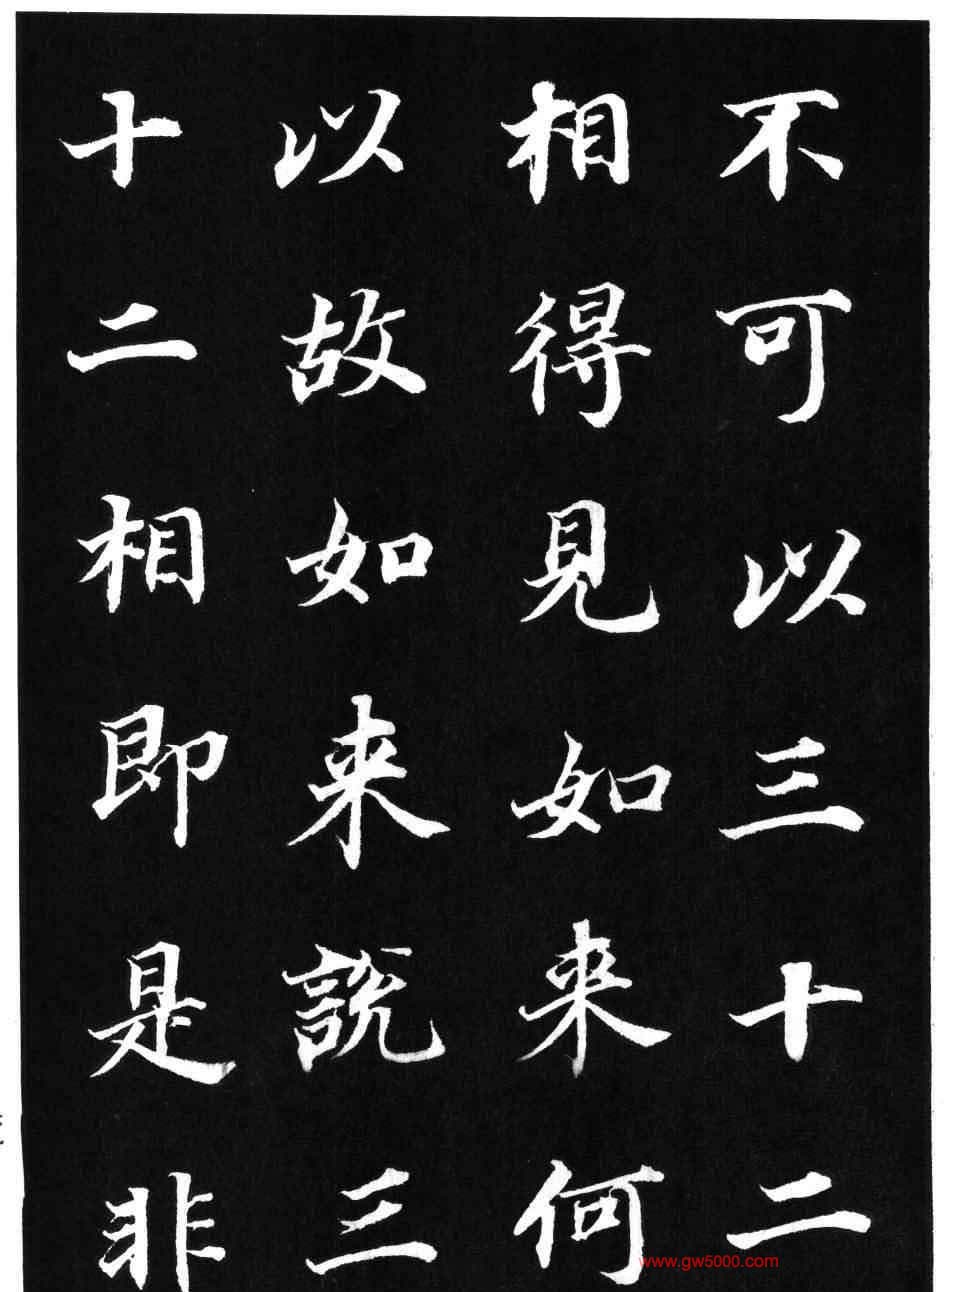 不可以三十二
相得見如来何
以故如来説三
十二相即是非
www.gw5000.com